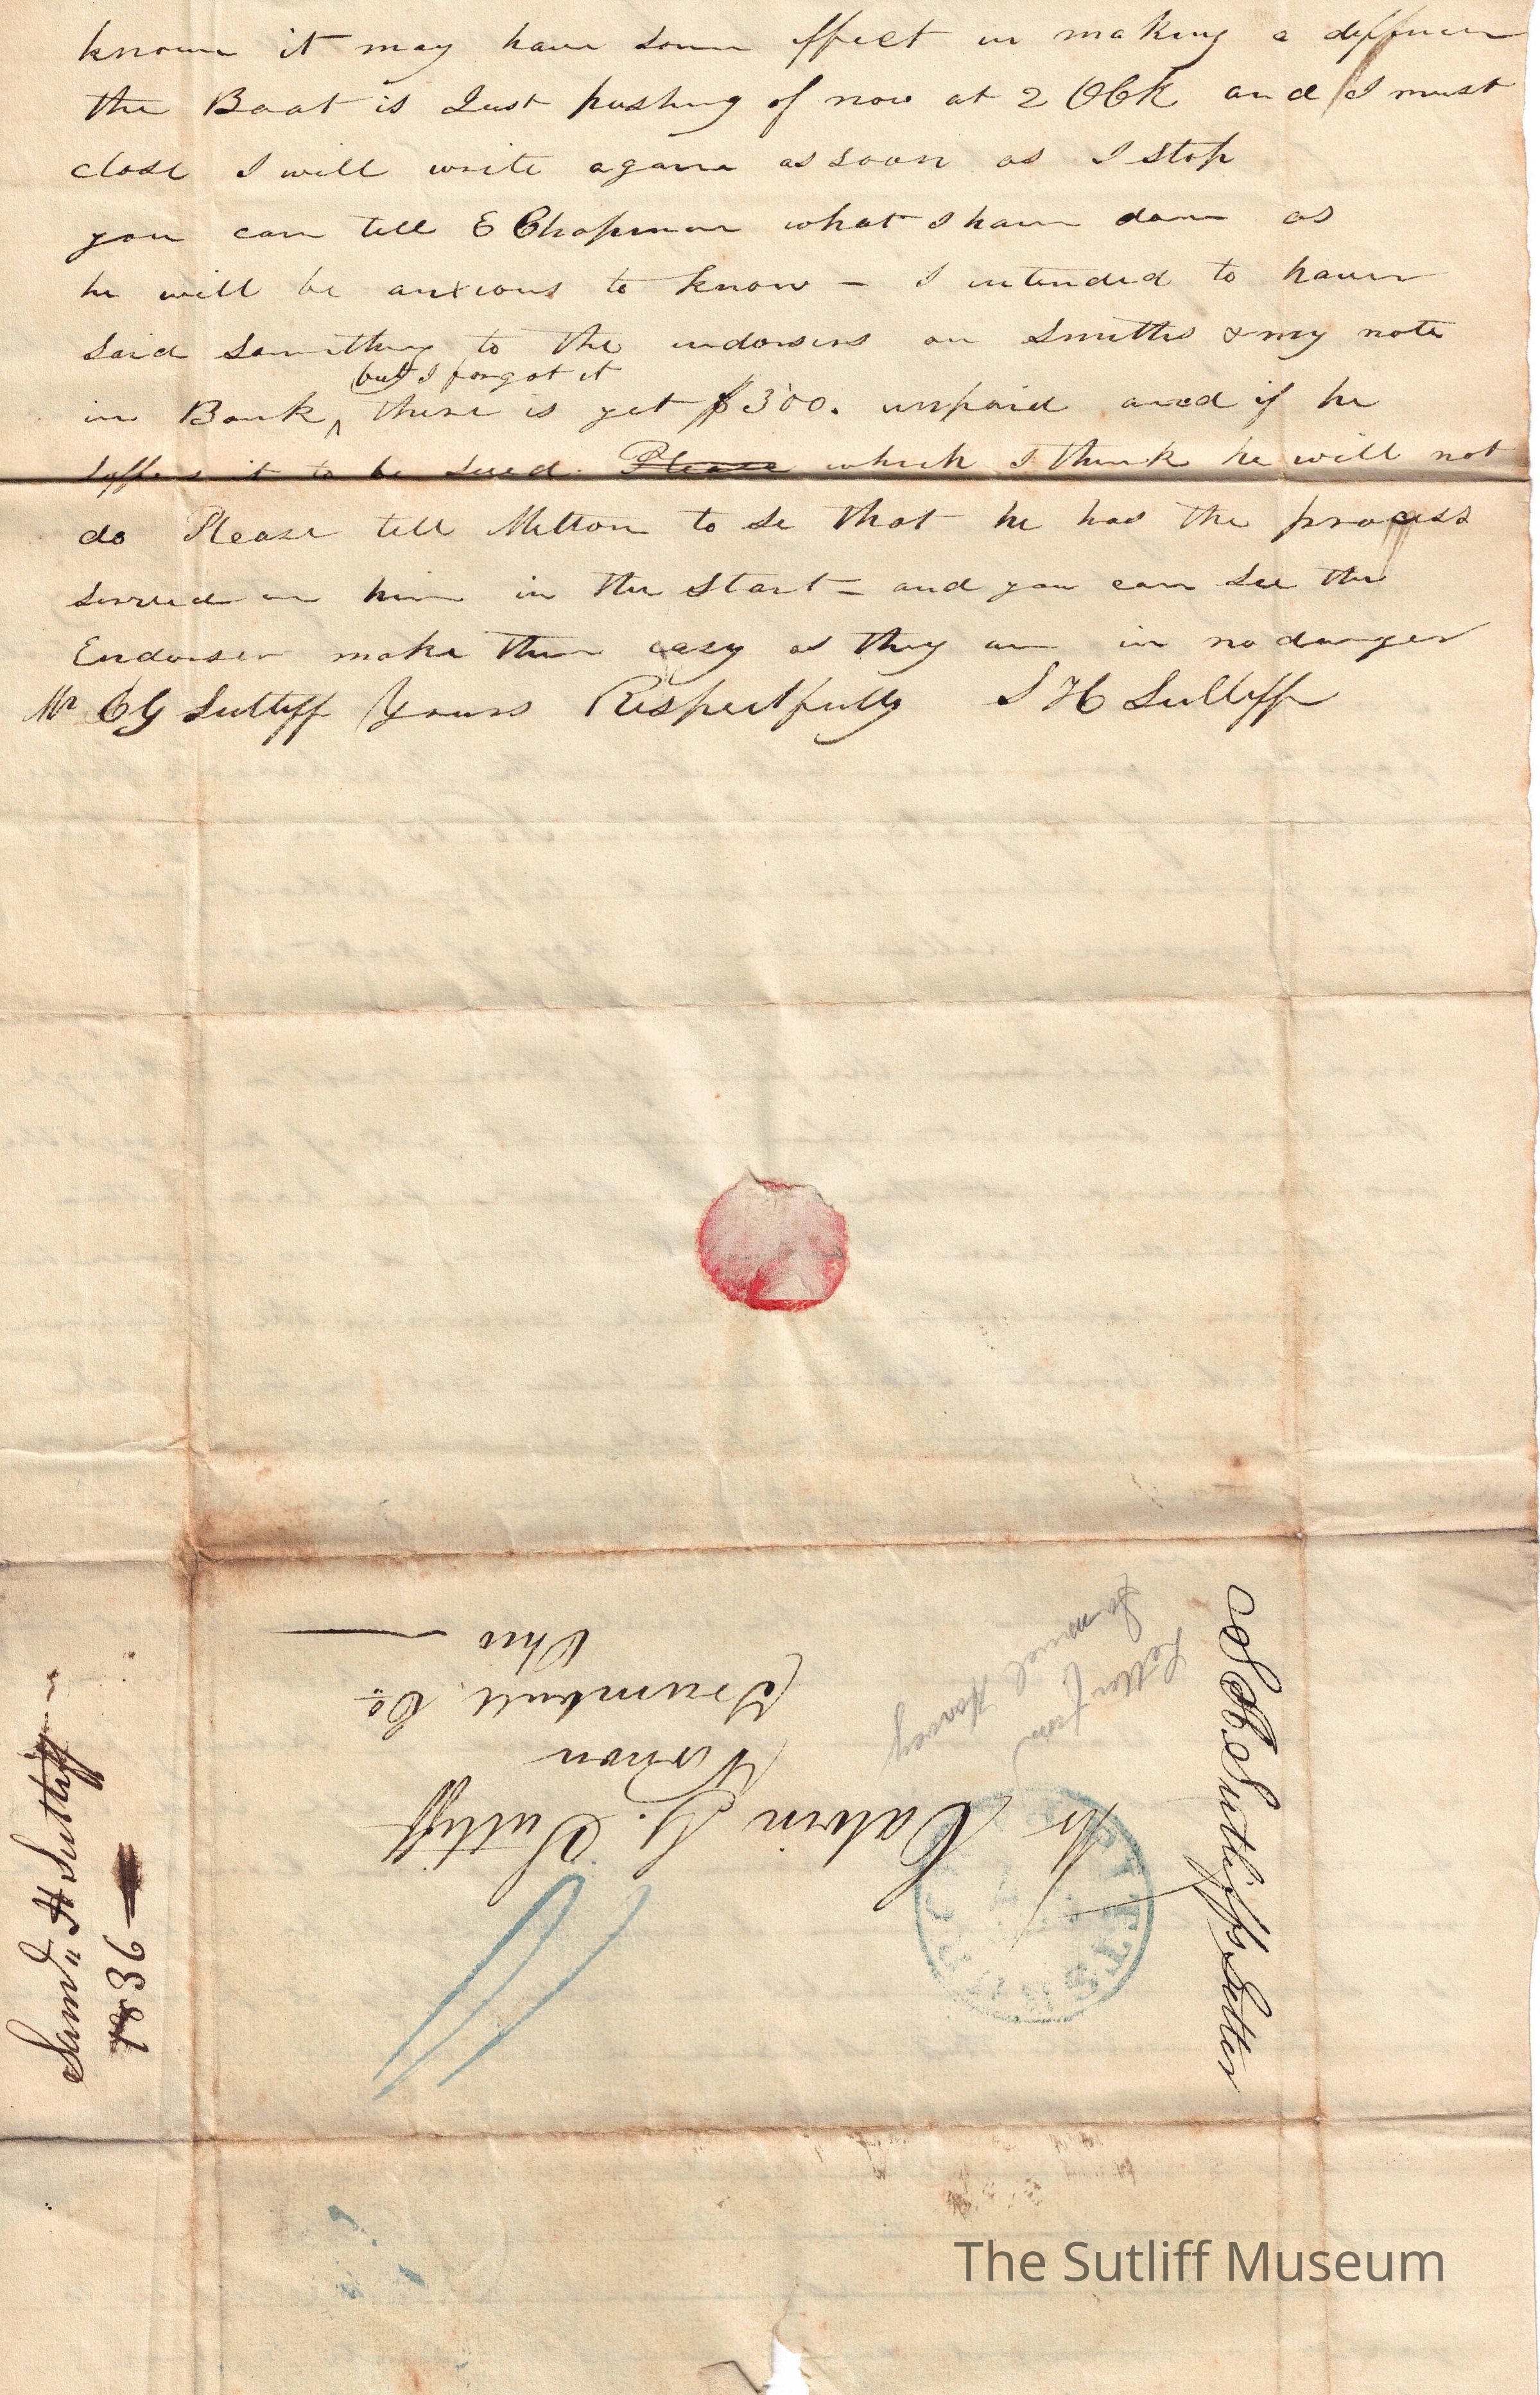 known it may have some effect in making a differnce
the Boat is Just pushing of now at 2 OCk and I must
close I will write again as soon as I stop
you can tell E Chapman what I have done as
he will be anxious to know – I intended to have
said something to the indorsers on Smiths & my note
but I forgot it
in Bank ^ there is yet $300. unpaid and if he
suffers it to be sued. Please which I think he will not
do Please tell Milton to se that he has the process
served on him in the start – and you can see the
Endorser make them easy as they are in no danger
Mr C G Sutliff Yours Respectfully S H Sutliff
Mr Calvin G. Sutliff
Vernon
Trumbull Co
Ohio
Letter from
Samuel Harvey
S H Sutliffs Letter
Saml H Sutliff
1836
The Sutliff Museum